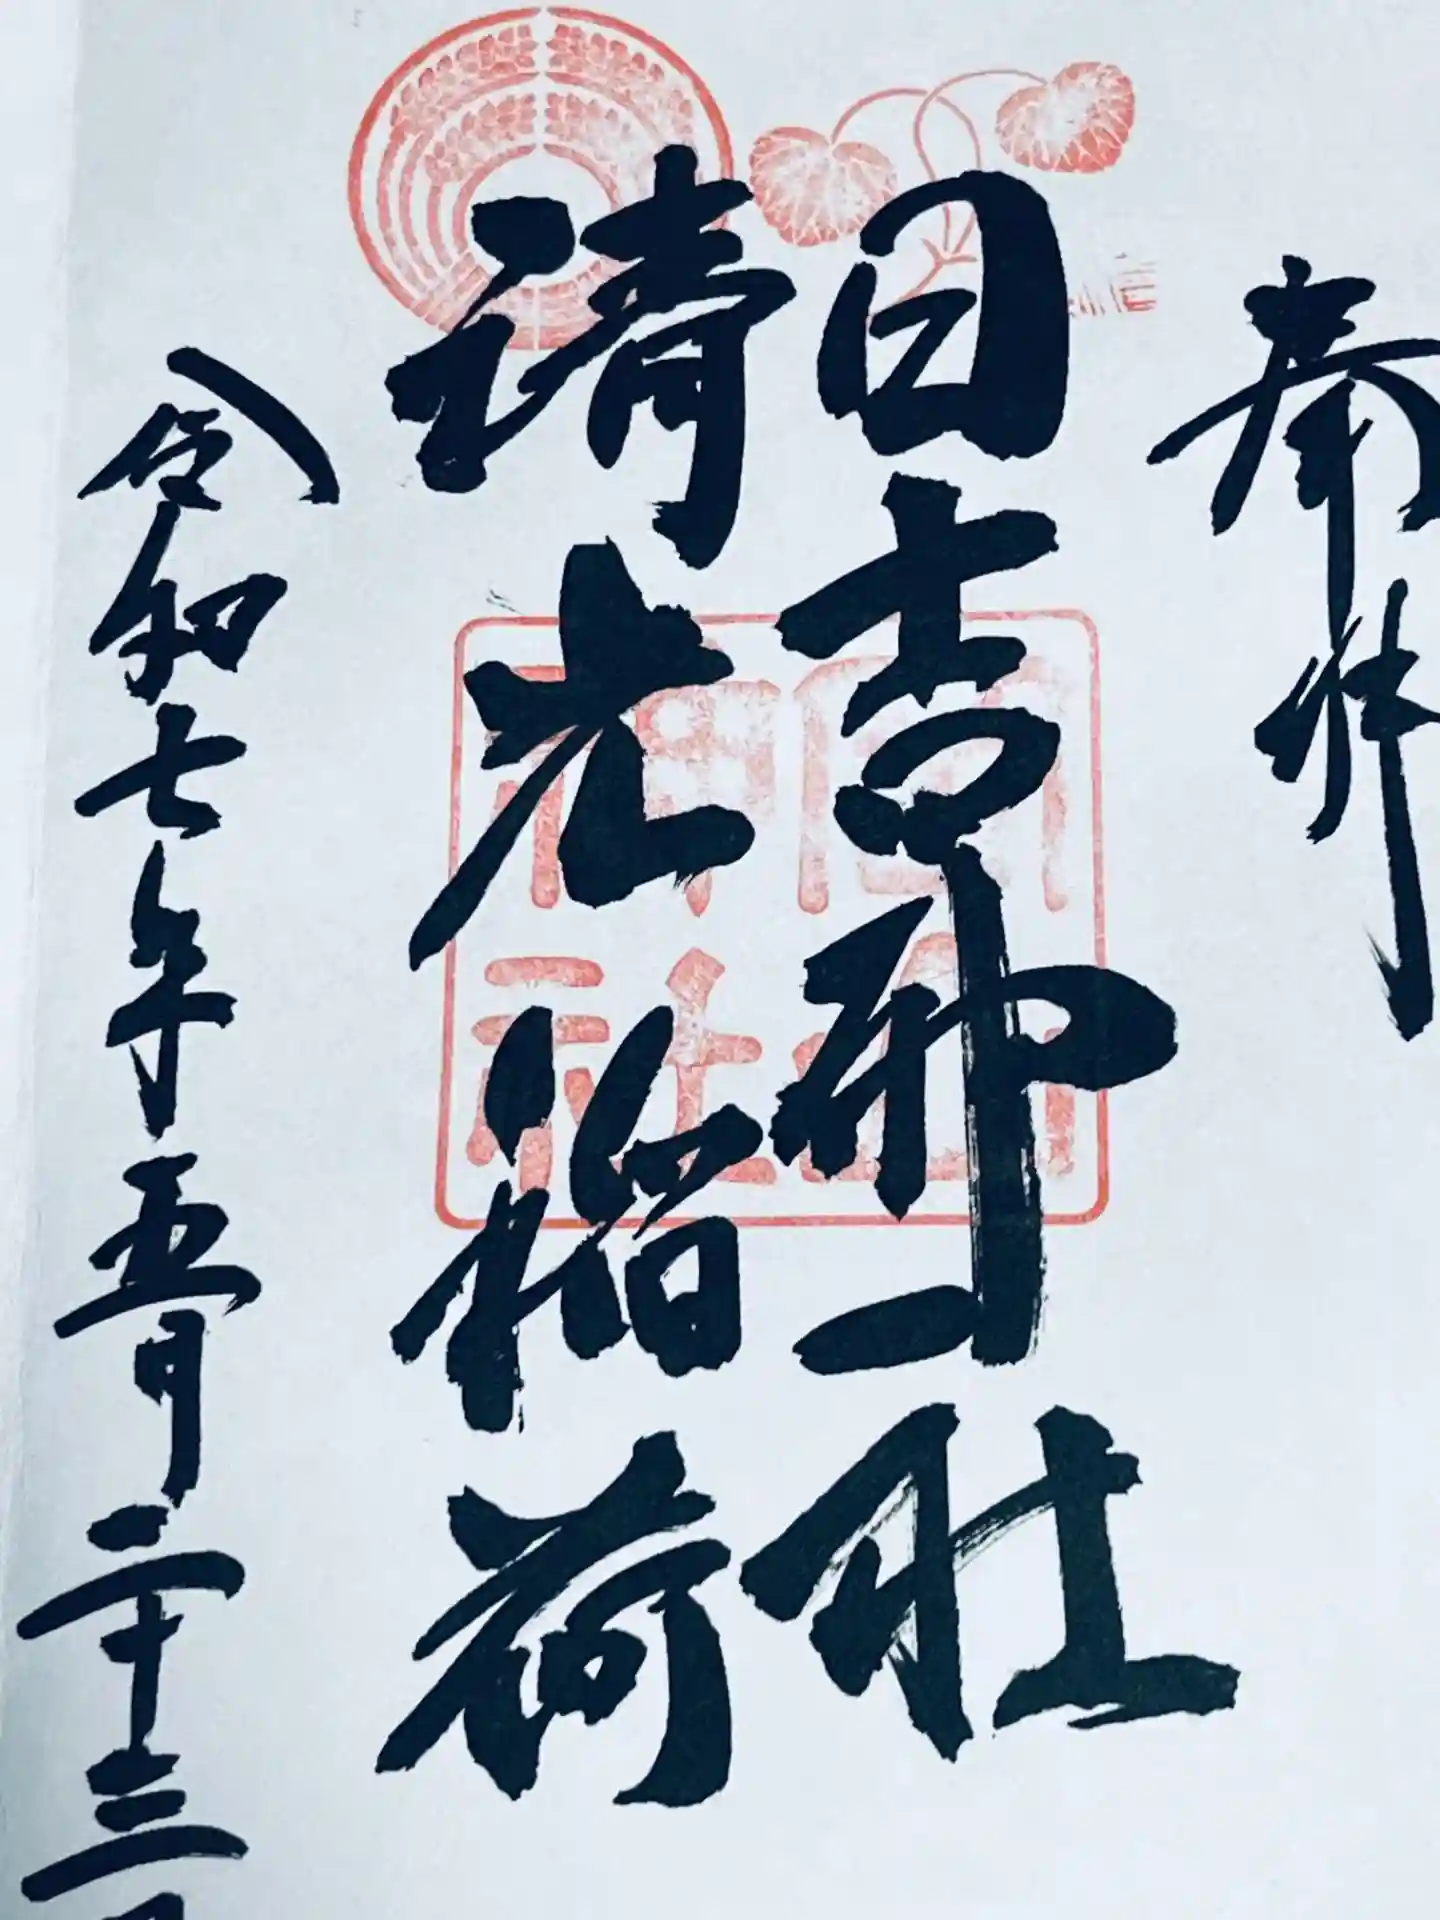 奉拝
日吉神社
清光稲荷
令和七年五月二十三日
日吉神社